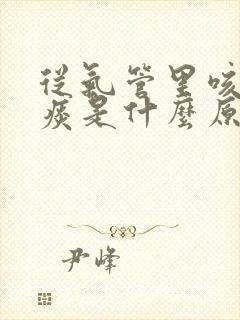 從氣管里咳
痰是什麼原
尹峰